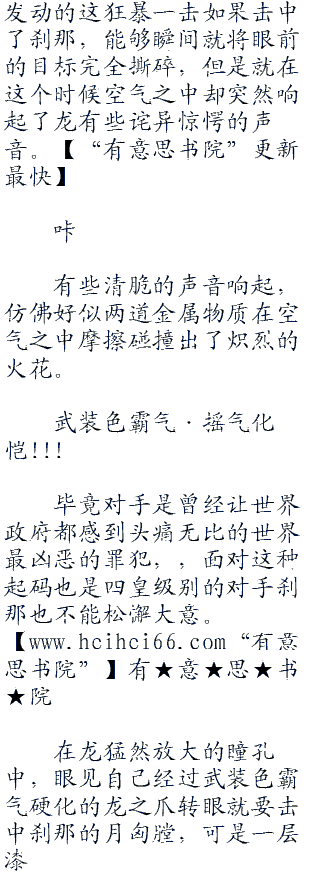 发动的这狂暴一击如果击中
了刹那，能够瞬间就将眼前
的目标完全撕碎，但是就在
这个时候空气之中却突然响
起了龙有些诧异惊愕的声
音。【“有意思书院”更新
最快】
咔
有些清脆的声音响起，
仿佛好似两道金属物质在空
气之中摩擦碰撞出了炽烈的
火花。
武装色霸气·摇气化
恺!!!
毕竟对手是曾经让世界
政府都感到头痛无比的世界
最凶恶的罪犯，，面对这种
起码也是四皇级别的对手刹
那也不能松懈大意。
【www.hcihci66.com“有意
思书院”】有★意★思★书
★院
在龙猛然放大的瞳孔
中，眼见自己经过武装色霸
气硬化的龙之爪转眼就要击
中刹那的月匈膛，可是一层
漆